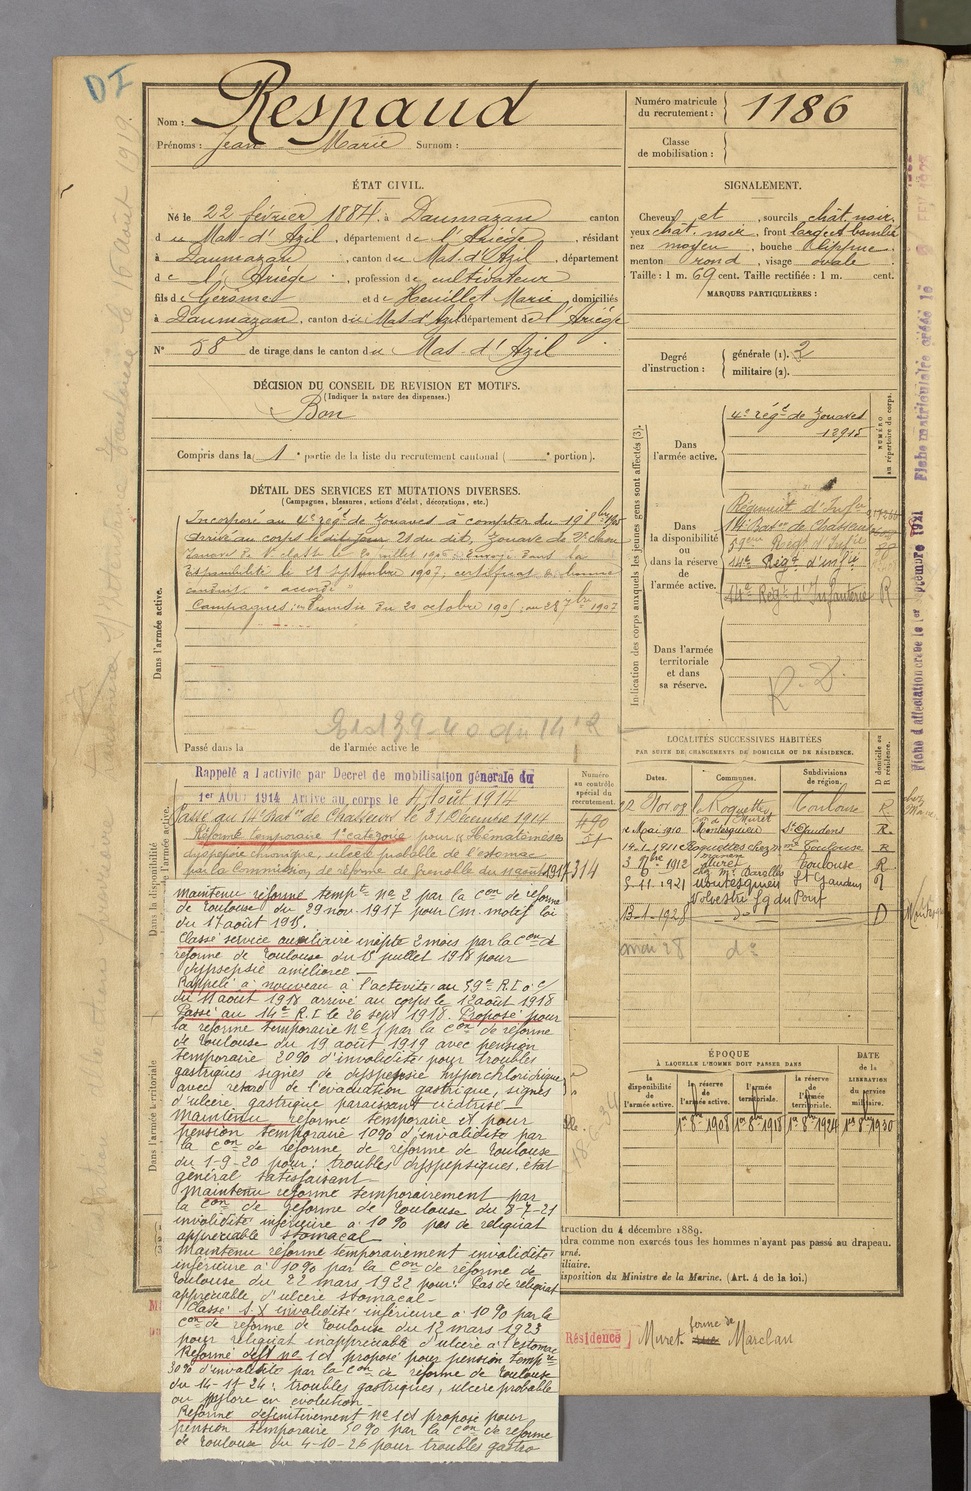 DI
Nom : Respaud
Prénoms : Jean - Marie Surnom :
Numéro matricule du recrutement : 1186
Classe de mobilisation :
ÉTAT CIVIL.
Né le 22 février 1884, à Daumazan canton
du Mas-d'Azil, département de l'Ariége, résidant
à Daumazan, canton du Mas-d'Azil, département
de l'Ariége, profession de cultivateur
fils de Germet et de Heuillet Marie, domiciliés
à Daumazan, canton du Mas-d'Azil département de l'Ariége
N° 58 de tirage dans le canton du Mas-d'Azil
SIGNALEMENT.
Cheveux et , sourcils chât. noir,
yeux chât. noir, front large et bombé
nez moyen, bouche lippue,
menton rond, visage ovale.
Taille : 1 m. 69 cent. Taille rectifiée : 1 m. cent.
MARQUES PARTICULIÈRES :
Degré d'instruction : générale (1). 2
militaire (2).
DÉCISION DU CONSEIL DE REVISION ET MOTIFS.
(Indiquer la nature des dispenses.)
Bon
Compris dans la 1e partie de la liste du recrutement cantonal ( e portion).
DÉTAIL DES SERVICES ET MUTATIONS DIVERSES.
(Campagnes, blessures, actions d'éclat, décorations, etc.)
Dans l'armée active.
Incorporé au 4e régt de Zouaves à compter du 19 8bre 1905
Arrivé au corps le dit jour 21 du dit, Zouave de 2e classe
disponibilité le 28 septembre 1907, certificat de bonne
conduite "accordé"
Campagnes : en Tunisie du 20 octobre 1905 au 28 7bre 1907
Passé dans la de l'armée active le
Indication des corps auxquels les jeunes gens sont affectés (3).
NUMÉRO au répertoire du corps.
Dans l'armée active.
4e régt de Zouaves
13915
Dans la disponibilité ou dans la réserve de l'armée active.
Régiment d'Infie
14e Batn de Chasseurs
59ème Régt d'Infie
14e Régt d'infie
14e Régt d'Infanterie R
Dans l'armée territoriale et dans sa réserve.
R. D.
LOCALITÉS SUCCESSIVES HABITÉES
PAR SUITE DE CHANGEMENTS DE DOMICILE OU DE RÉSIDENCE.
Dates. Communes. Subdivisions de région. D domicile ou R résidence.
22 Nov. 08 le Roquettes con de Muret Toulouse R
Mai 1910 Montesquieu St Gaudens R
19-1-1911 Roquettes chez Toulouse R
3 9bre 1912 Muret Toulouse R
5-11-1921 Montesquieu St Gaudens
Volvestre fg du Pont
13-1-1928 - do - D
do
Rappelé à l'activité par Decret de mobilisation générale du
1er AOUT 1914 Arrivé au corps le 4 Août 1914
Passé au 14e Batn de Chasseurs le 31 Décembre 1914
Réformé temporaire 1e catégorie pour "Hématémèses
dyspepsie chronique, ulcère probable de l'estomac
par la Commission de réforme de Grenoble du 11 août 1917
Numéro au contrôle spécial du recrutement.
490
51
314
Dans la disponibilité
l'armée active.
Dans l'armée territoriale
Maintenu réformé tempre n° 2 par la Con de réforme
de Toulouse du 29 nov. 1917 pour Cm. motif loi
du 17 août 1915.
Classé service auxiliaire inapte 2 mois par la Con de
réforme de Toulouse du 15 juillet 1918 pour
dyspepsie améliorée —
Rappelé à nouveau à l'activité au 59e R.I. à c/
du 11 août 1918 arrivé au corps le 12 août 1918
Passé au 14e R.I. le 26 sept 1918. Proposé pour
la réforme temporaire N° 1 par la Con de réforme
de Toulouse du 19 août 1919 avec pension
temporaire 20% d'invalidité pour troubles
gastriques signes de dyspepsie hyperchlorhydrique
avec retard de l'évacuation gastrique, signes
d'ulcère gastrique paraissant cicatrisé —
Maintenu réformé temporaire et pour
pension temporaire 10% d'invalidité par
la Con de réforme de réforme de Toulouse
du 1-9-20 pour : troubles dyspepsiques, état
général satisfaisant
Maintenu réformé temporairement par
la Con de réforme de Toulouse du 8-7-21
invalidité inférieure à 10% pas de reliquat
appréciable stomacal —
Maintenu réformé temporairement invalidité
inférieure à 10% par la Con de réforme de
Toulouse du 22 mars 1922 pour : Pas de reliquat
appréciable d'ulcère stomacal —
Classé S.X invalidité inférieure à 10% par la
Con de réforme de Toulouse du 12 mars 1923
pour reliquat inappréciable d'ulcère à l'estomac
Réformé deft n° 1 et proposé pour pension tempre
30% d'invalidité par la Con de réforme de Toulouse
du 14-11-24 : troubles gastriques, ulcère probable
au pylore en évolution —
Réformé définitivement n° 1 et proposé pour
pension temporaire 50% par la Con de réforme
de Toulouse du 4-10-26 pour troubles gastro
ÉPOQUE
À LAQUELLE L'HOMME DOIT PASSER DANS
la disponibilité de l'armée active. la réserve de l'armée active. l'armée territoriale. la réserve de l'armée territoriale.
DATE DE LA LIBÉRATION du service militaire.
1er 8bre 1908 1er 8bre 1918 1er 8bre 1924 1er 8bre 1930
truction du 4 décembre 1889.
dra comme non exercés tous les hommes n'ayant pas passé au drapeau.
rné.
iliaire.
isposition du Ministre de la Marine. (Art. 4 de la loi.)
Résidence Muret ferme de Marclan
Fiche d'affectation créée le 1er septembre 1921
Fiche matriculaire créée le